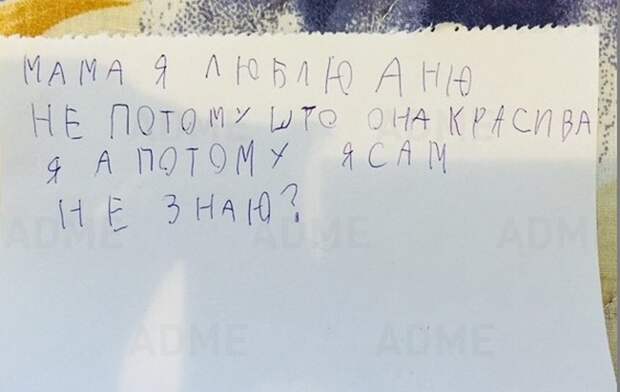 МАМА Я ЛЮБЛЮ АНЮ
НЕ ПОТОМУ ШТО ОНА КРАСИВА
Я А ПОТОМУ ЯСАМ
НЕ ЗНАЮ?
ADME ADME ADME
ADME ADME